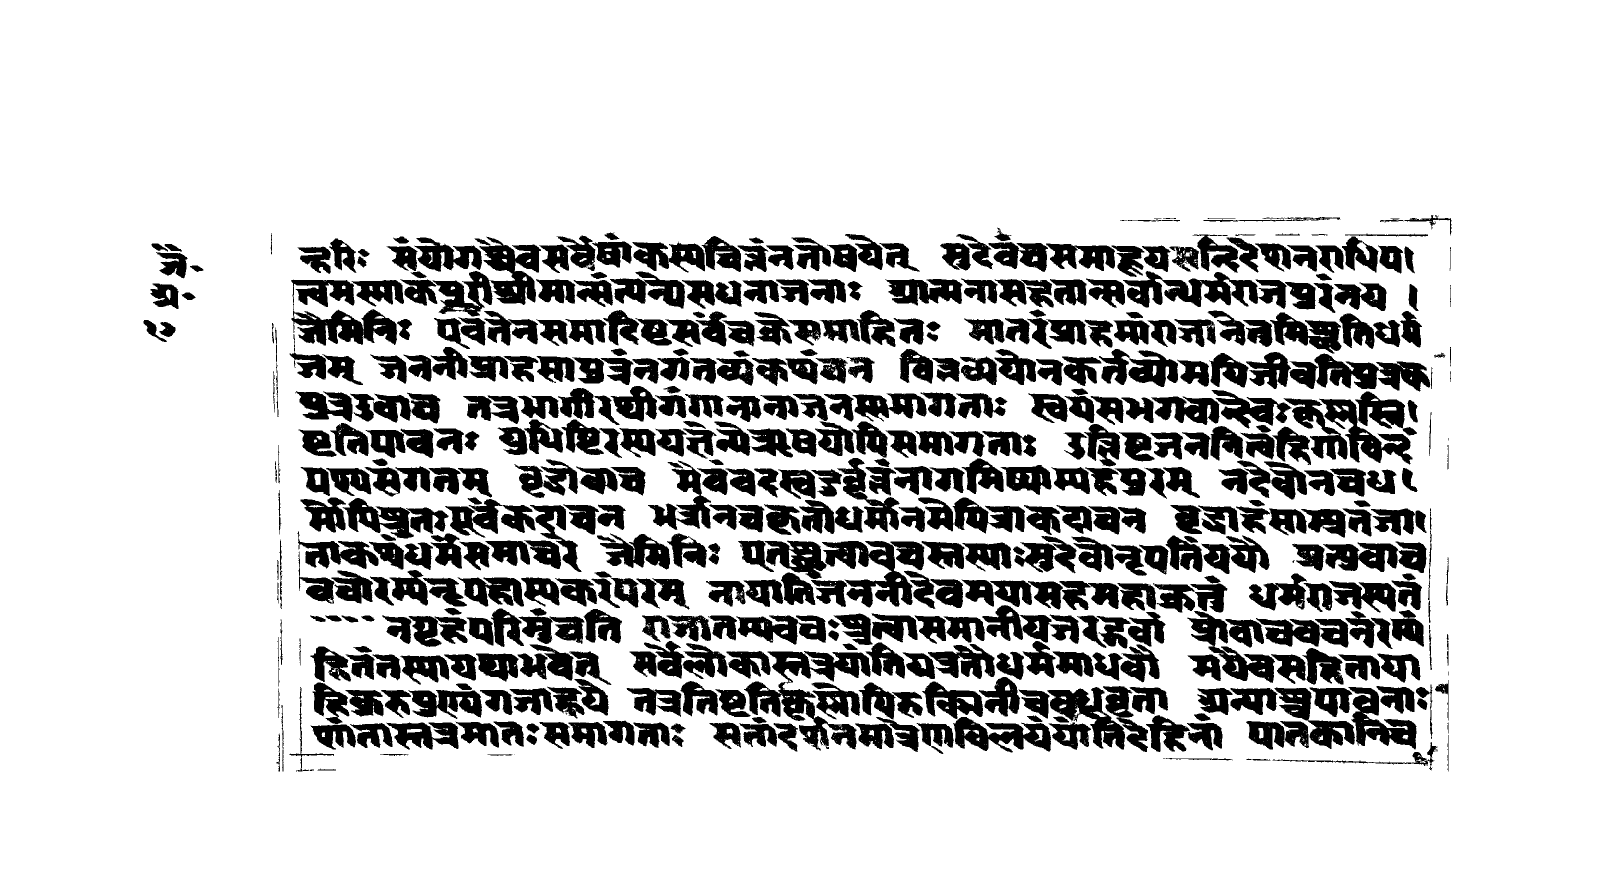 जै॰
अ॰
१७
न्हरिः संयोगश्चैवसर्वेषांकस्यचित्तंनतोषयेत् सुदेवंचसमाहूय सन्दिदेशनराधिप।
त्वमस्माकंपुरीश्रीमान्संत्यन्येसधनाजनाः आत्मनासहतान्सर्वान्धर्मराजपुरंनय ।
जैमिनिः एवंतेनसमादिष्टसर्वंचक्रेसमाहितः मातरंप्राहमांराजानेतुमिच्छतिधर्म
जम् जननीप्राहसापुत्रंनगंतव्यंकथंचन वित्तव्ययोनकर्तव्योमयिजीवतिपुत्रक
पुत्रउवाच तत्रभागीरथीगंगानानाजनसमागताः स्वयंसभगवान्देवःकृष्णस्ति।
ष्टतिपावनः युधिष्टिरस्ययज्ञेन्येऋषयोपिसमागताः उत्तिष्टजननित्वंहिगोविन्दं
पश्यसंगतम् वृद्धोवाच मैवंवदस्वदुर्वृत्तंनागमिष्याम्यहंपुरम् नदेवोनचध।
र्मोपिश्रुतःपूर्वंकदाचन भर्त्रानचकृतोधर्मोनमेपित्राकदाचन वृद्धाहंसाम्प्रतंजा।
ताकथंधर्मंसमाचरे जैमिनिः एतच्छ्रुत्वावचस्तस्याःसुदेवोनृपतिंययौ प्रत्युवाच
वचोरम्यंनृपहास्यकरंपरम् नायातिजननीदेवमयासहमहाक्रतुं धर्मराजस्यतं
नगृहंपरिमुंचति राजातस्यवचःश्रुत्वासमानीयजरद्गवां प्रोवाचवचनंरम्यं
हितंतस्यायथाभवेत् सर्वेलोकास्तत्रयांतियत्रतौधर्ममाधवौ मयैवसहिताया
हिक्रतुपुण्यंगजाह्वये तत्रतिष्टतिकृष्णोपिरुक्मिणीचवधूवृता अन्याश्चपावनाः
शांतास्तत्रमातःसमागताः सतांदर्शनमात्रेणविलयंयांतिदेहिनां पातकानिच